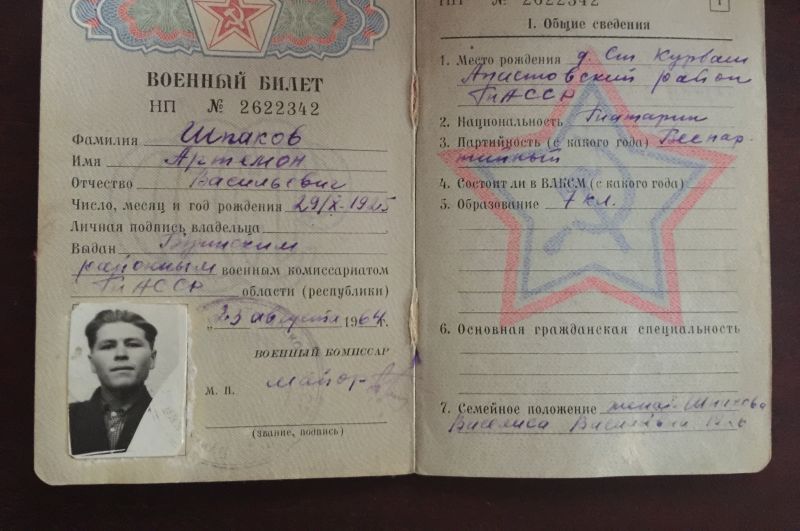 ВОЕННЫЙ БИЛЕТ
НП № 2622342
Фамилия Шпаков
Имя Артемон
Отчество Васильевич
Число, месяц и год рождения 29/X-1925
Личная подпись владельца
Выдан Буинским
районным военным комиссариатом
ТАССР области (республики)
„23 августа 1964 г.
ВОЕННЫЙ КОМИССАР
М. П. майор
(звание, подпись)
НП № 2622342 1
I. Общие сведения
1. Место рождения д. Ст Курбаш
Апастовский район
ТАССР
2. Национальность Татарин
3. Партийность (с какого года) Беспар-
тийный
4. Состоит ли в ВЛКСМ (с какого года)
5. Образование 7 кл.
6. Основная гражданская специальность
7. Семейное положение жена-Шпакова
Василиса